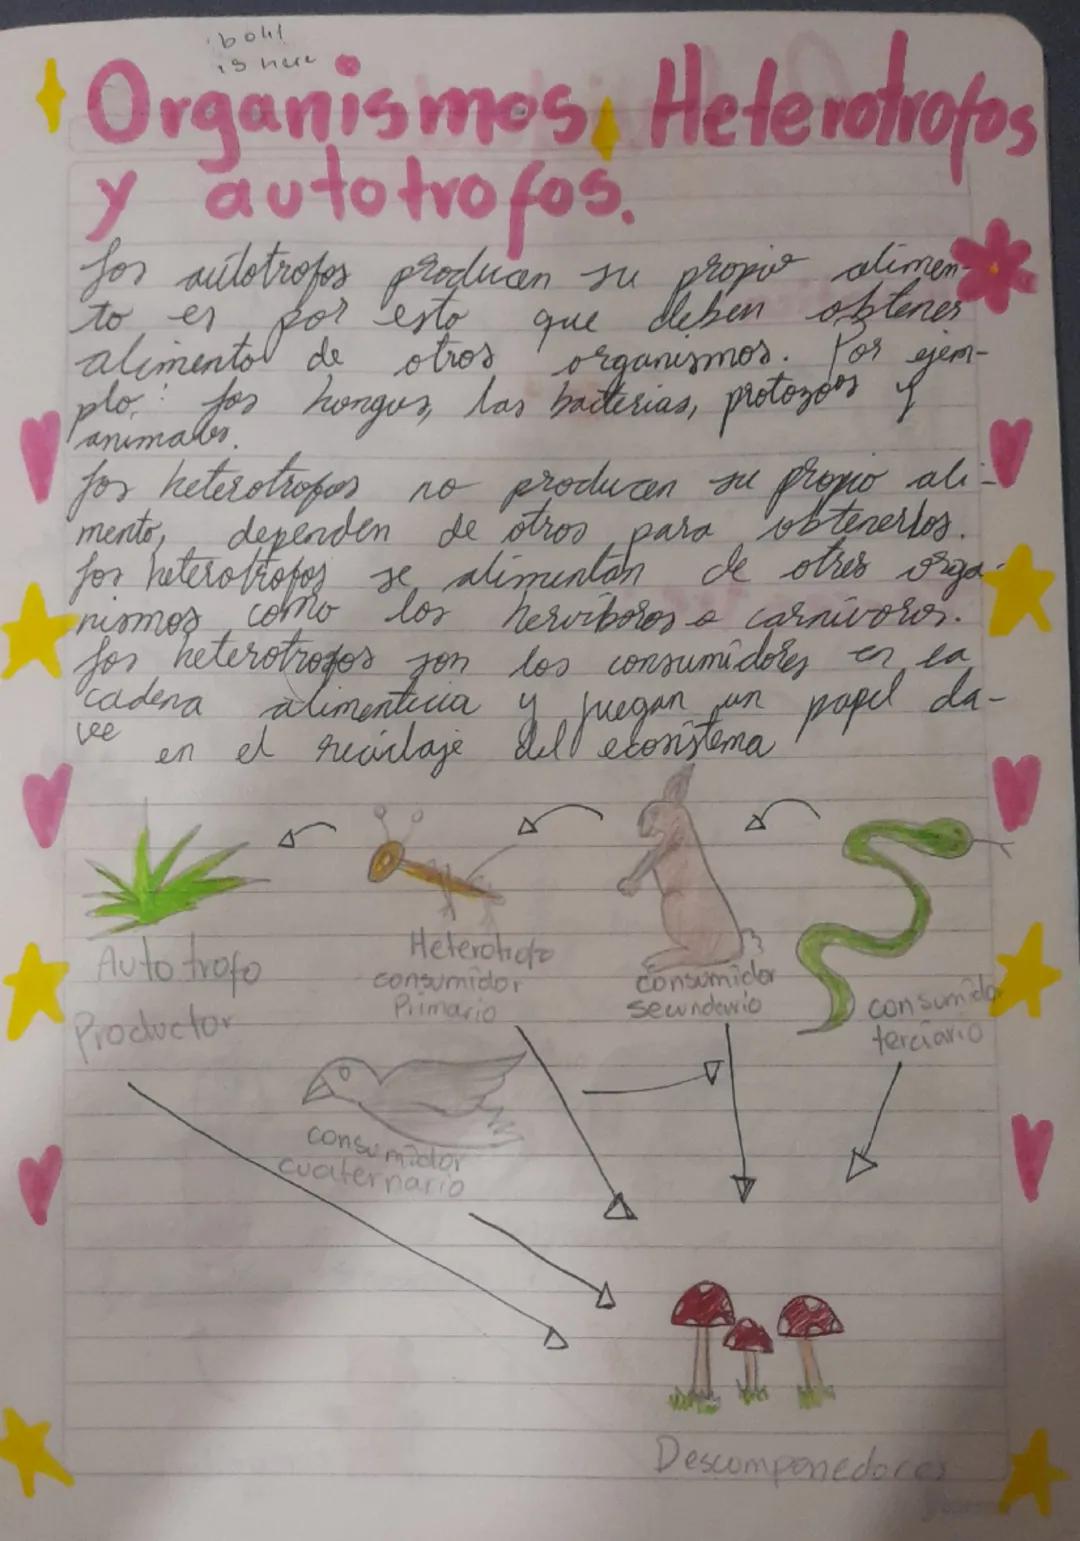 Organismos Heterotrofos
y autotrofos.
Los autotrofos producen su propio alimen-
to es por esto que deben obtener
alimento de otros organismos. Por ejem-
plo: los hongos, las bacterias, protozoos y
animales.
Los heterotrofos no producen su propio ali-
mento, dependen de otros para obtenerlos.
Los heterotrofos se alimentan de otros orga-
nismos como los herviboros o carnívoros.
Los heterotrofos son los consumidores en la
cadena alimenticia y juegan un papel cla-
ve en el reciclaje del ecosistema
Autotrofo
Productor
Heterotrofo
consumidor
Primario
consumidor
secundario
consumidor
terciario
consumidor
cuaternario
Descomponedores